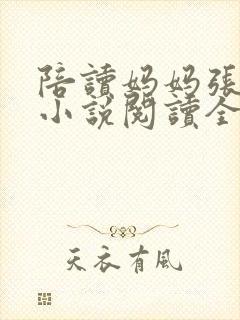 陪讀妈妈張
小說閱讀全
天衣有風